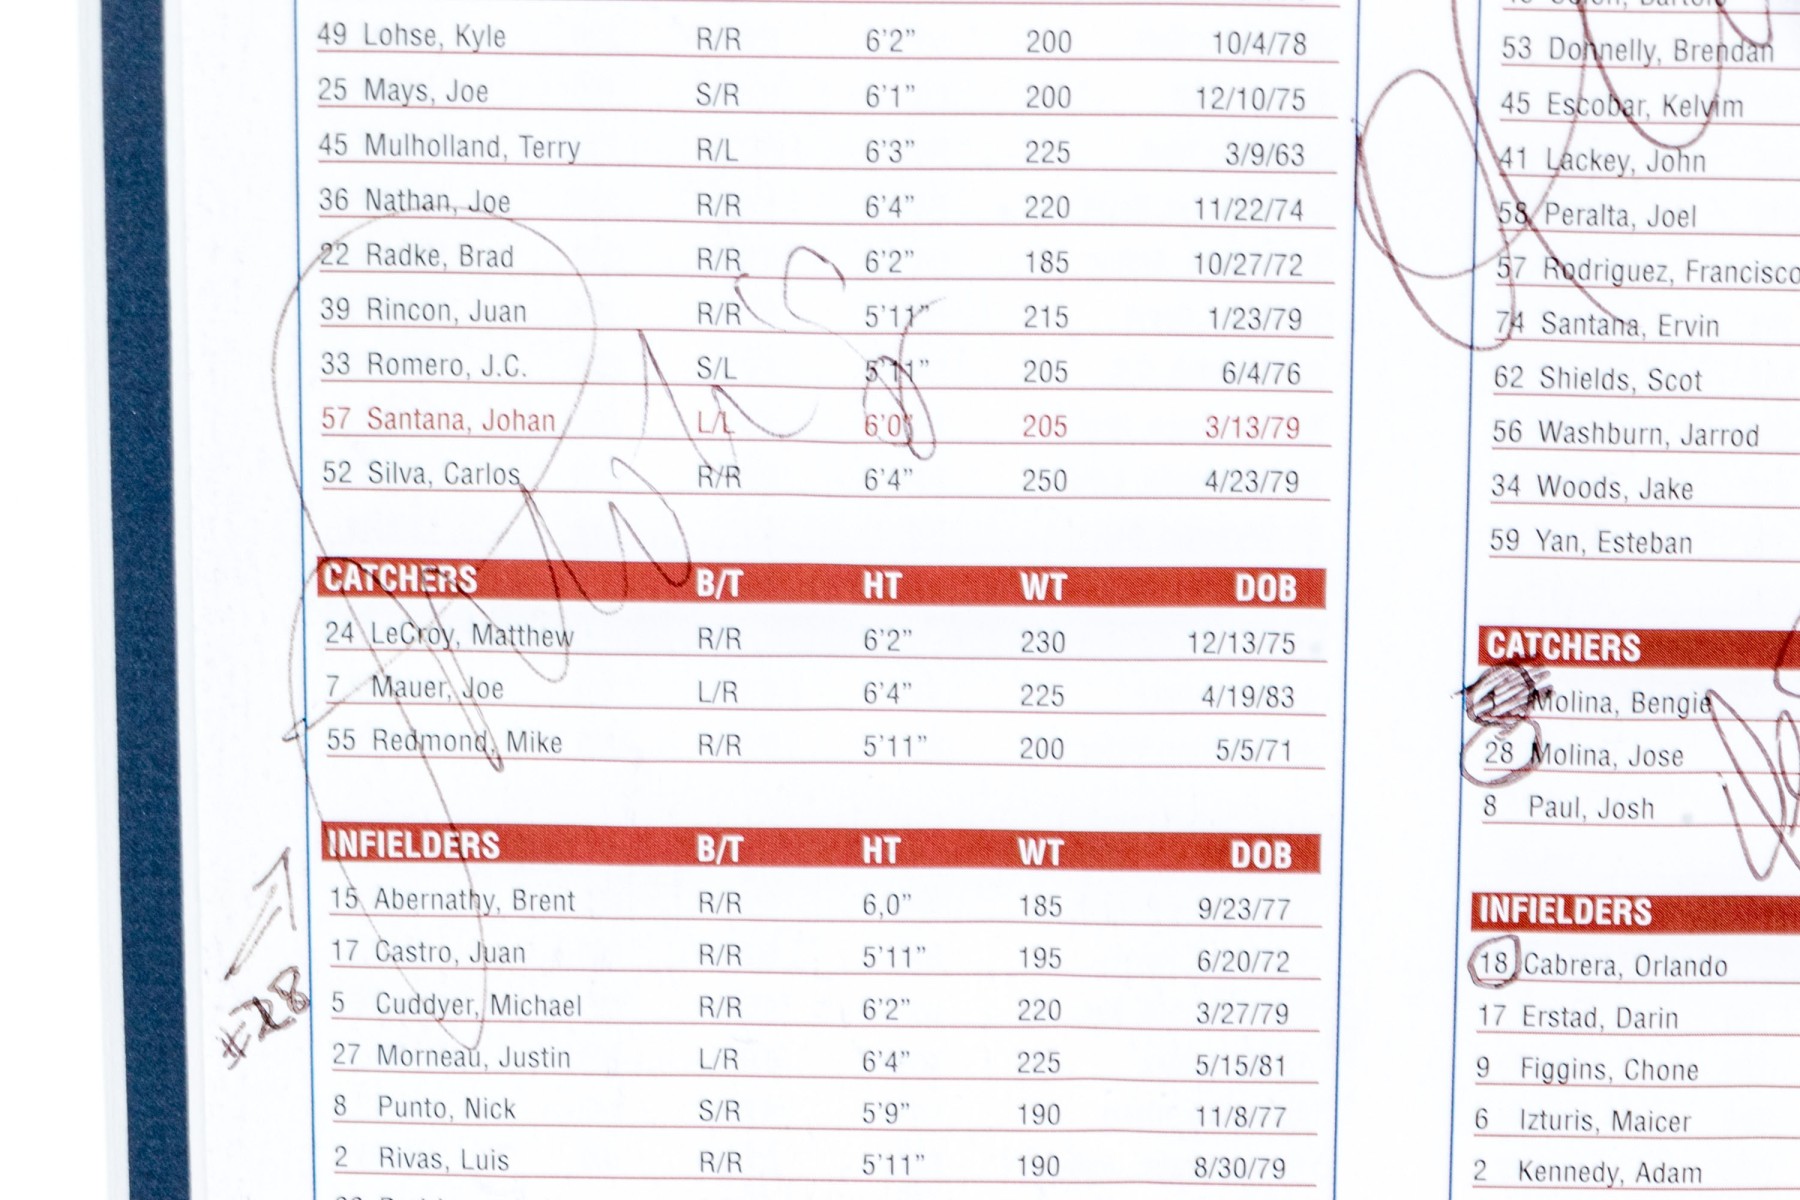 49 Lohse, Kyle R/R 6'2" 200 10/4/78
25 Mays, Joe S/R 6'1" 200 12/10/75
45 Mulholland, Terry R/L 6'3" 225 3/9/63
36 Nathan, Joe R/R 6'4" 220 11/22/74
22 Radke, Brad R/R 6'2" 185 10/27/72
39 Rincon, Juan R/R 5'11" 215 1/23/79
33 Romero, J.C. S/L 5'11" 205 6/4/76
57 Santana, Johan L/L 6'0" 205 3/13/79
52 Silva, Carlos R/R 6'4" 250 4/23/79
CATCHERS B/T HT WT DOB
24 LeCroy, Matthew R/R 6'2" 230 12/13/75
7 Mauer, Joe L/R 6'4" 225 4/19/83
55 Redmond, Mike R/R 5'11" 200 5/5/71
INFIELDERS B/T HT WT DOB
15 Abernathy, Brent R/R 6,0" 185 9/23/77
17 Castro, Juan R/R 5'11" 195 6/20/72
5 Cuddyer, Michael R/R 6'2" 220 3/27/79
27 Morneau, Justin L/R 6'4" 225 5/15/81
8 Punto, Nick S/R 5'9" 190 11/8/77
2 Rivas, Luis R/R 5'11" 190 8/30/79
#28
53 Donnelly, Brendan
45 Escobar, Kelvim
41 Lackey, John
58 Peralta, Joel
57 Rodriguez, Francisco
74 Santana, Ervin
62 Shields, Scot
56 Washburn, Jarrod
34 Woods, Jake
59 Yan, Esteban
CATCHERS
Molina, Bengie
28 Molina, Jose
8 Paul, Josh
INFIELDERS
18 Cabrera, Orlando
17 Erstad, Darin
9 Figgins, Chone
6 Izturis, Maicer
2 Kennedy, Adam